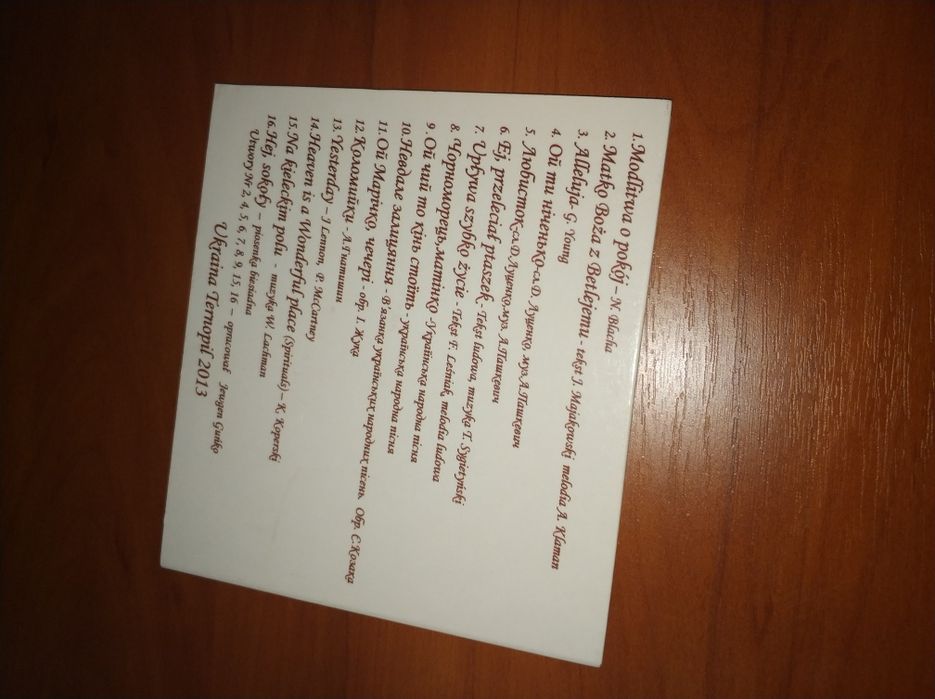 1. Modlitwa o pokój - N. Blacha
2. Matko Boża z Betlejemu - tekst J. Majakowski melodia A. Klaman
3. Alleluja - G. Young
4. Ой ти ніченько - сл.Д. Луценко, муз.А.Пашкевич
5. Любисток - сл.Д.Луценко,муз. А.Пашкевич
6. Ej, przeleciał ptaszek - Tekst ludowy, muzyka T. Sygietyński
7. Upływa szybko życie - Tekst F. Leśniak, melodia ludowa
8. Чорноморець,матінко - Українська народна пісня
9. Ой чий то кінь стоїть - українська народна пісня
10. Невдале залицяння - В'язанка українських народних пісень. Обр. Є.Козака
11. Ой Марічко, чечері - обр. І. Жука
12. Коломийки - А.Гнатишин
13. Yesterday - J Lennon, P. McCartney
14. Heaven is a Wonderful place (Spirituals) - K. Koperski
15. Na kieleckim polu - muzyka W. Lachman
16. Hej, sokoły - piosenka biesiadna
Utwory Nr 2, 4, 5, 6, 7, 8, 9, 15, 16 - opracował Jewgen Guńko
Ukraina Ternopil 2013